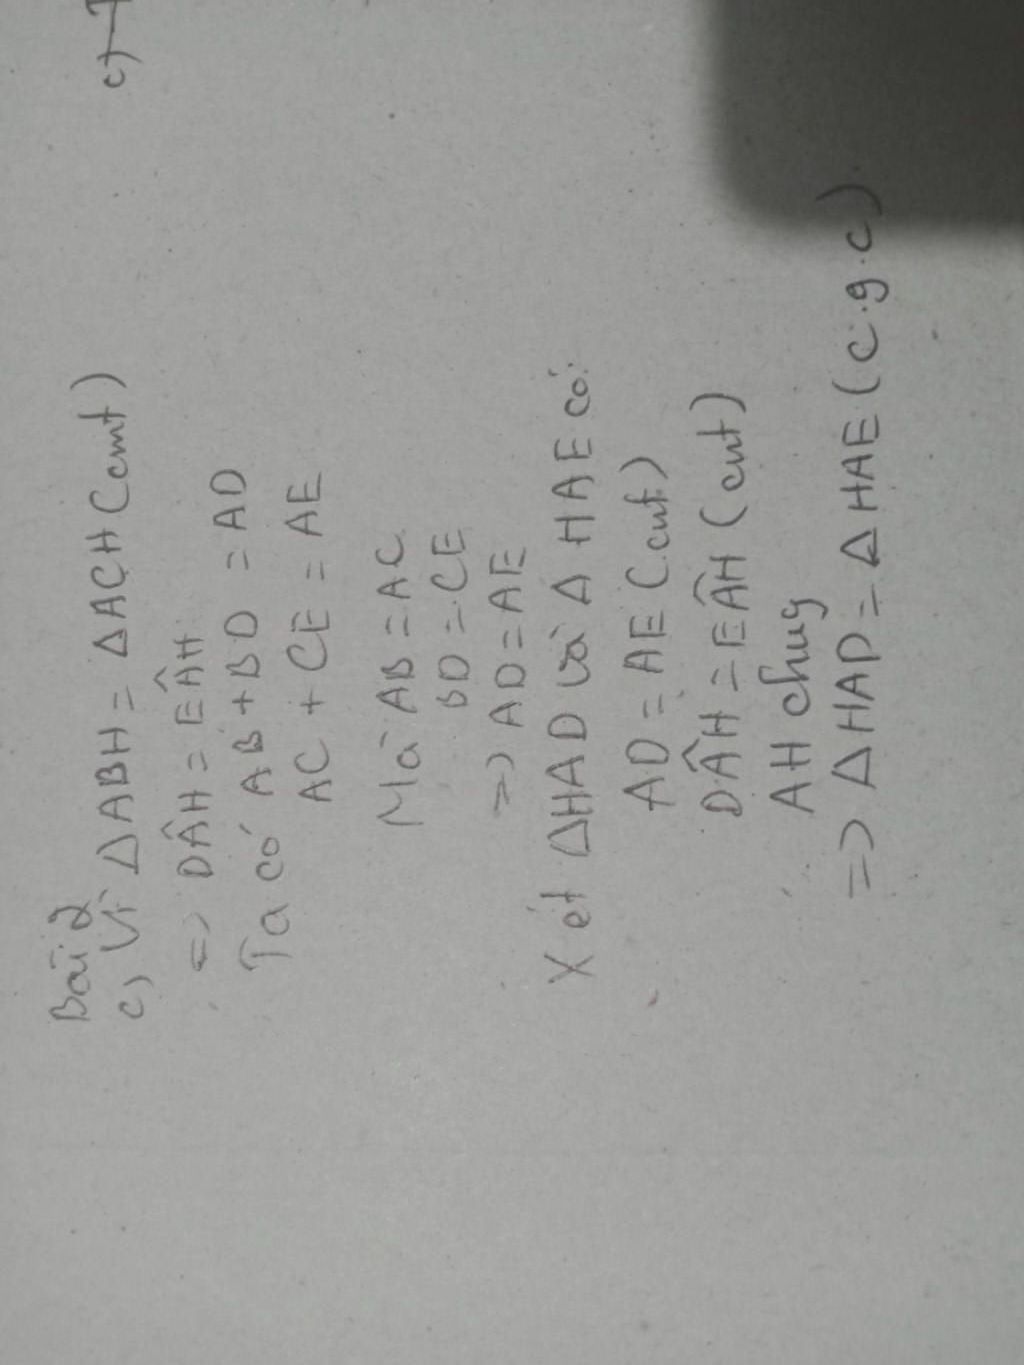 Bài 2
c) Vì ΔABH = ΔACH (cmt)
=> DÂH = EÂH
Ta có AB + BD = AD
AC + CE = AE
Mà AB = AC
BD = CE
=> AD = AE
Xét ΔHAD và ΔHAE có:
AD = AE (cmt)
DÂH = EÂH (cmt)
AH chug
=> ΔHAD = ΔHAE (c.g.c)
c)